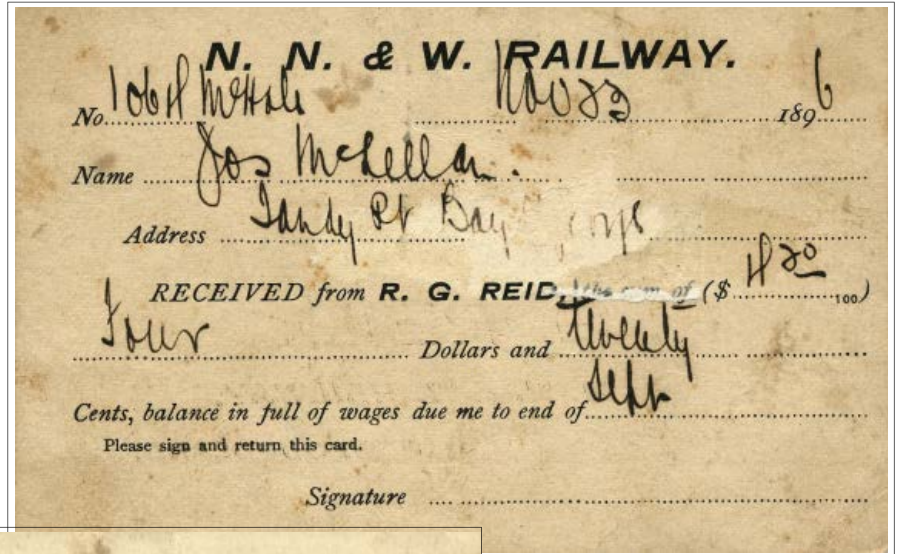 N. N. & W. RAILWAY.
No. 1064 McHale Nov 23 1896
Name Jos McLellan.
Address Sandy Pt Bay
RECEIVED from R. G. REID, the sum of ($ 4 20/100)
Four Dollars and twenty
Cents, balance in full of wages due me to end of Sept
Please sign and return this card.
Signature